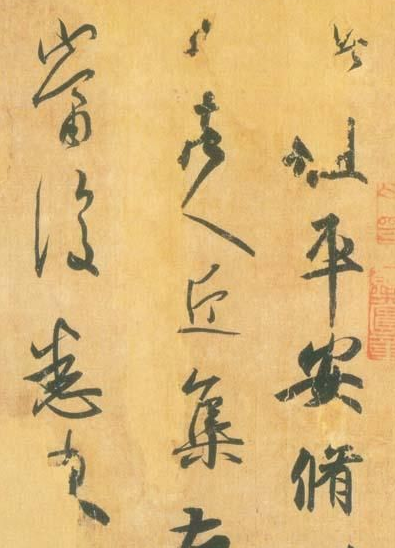 此粗平安脩
諸人近集
當復悉來